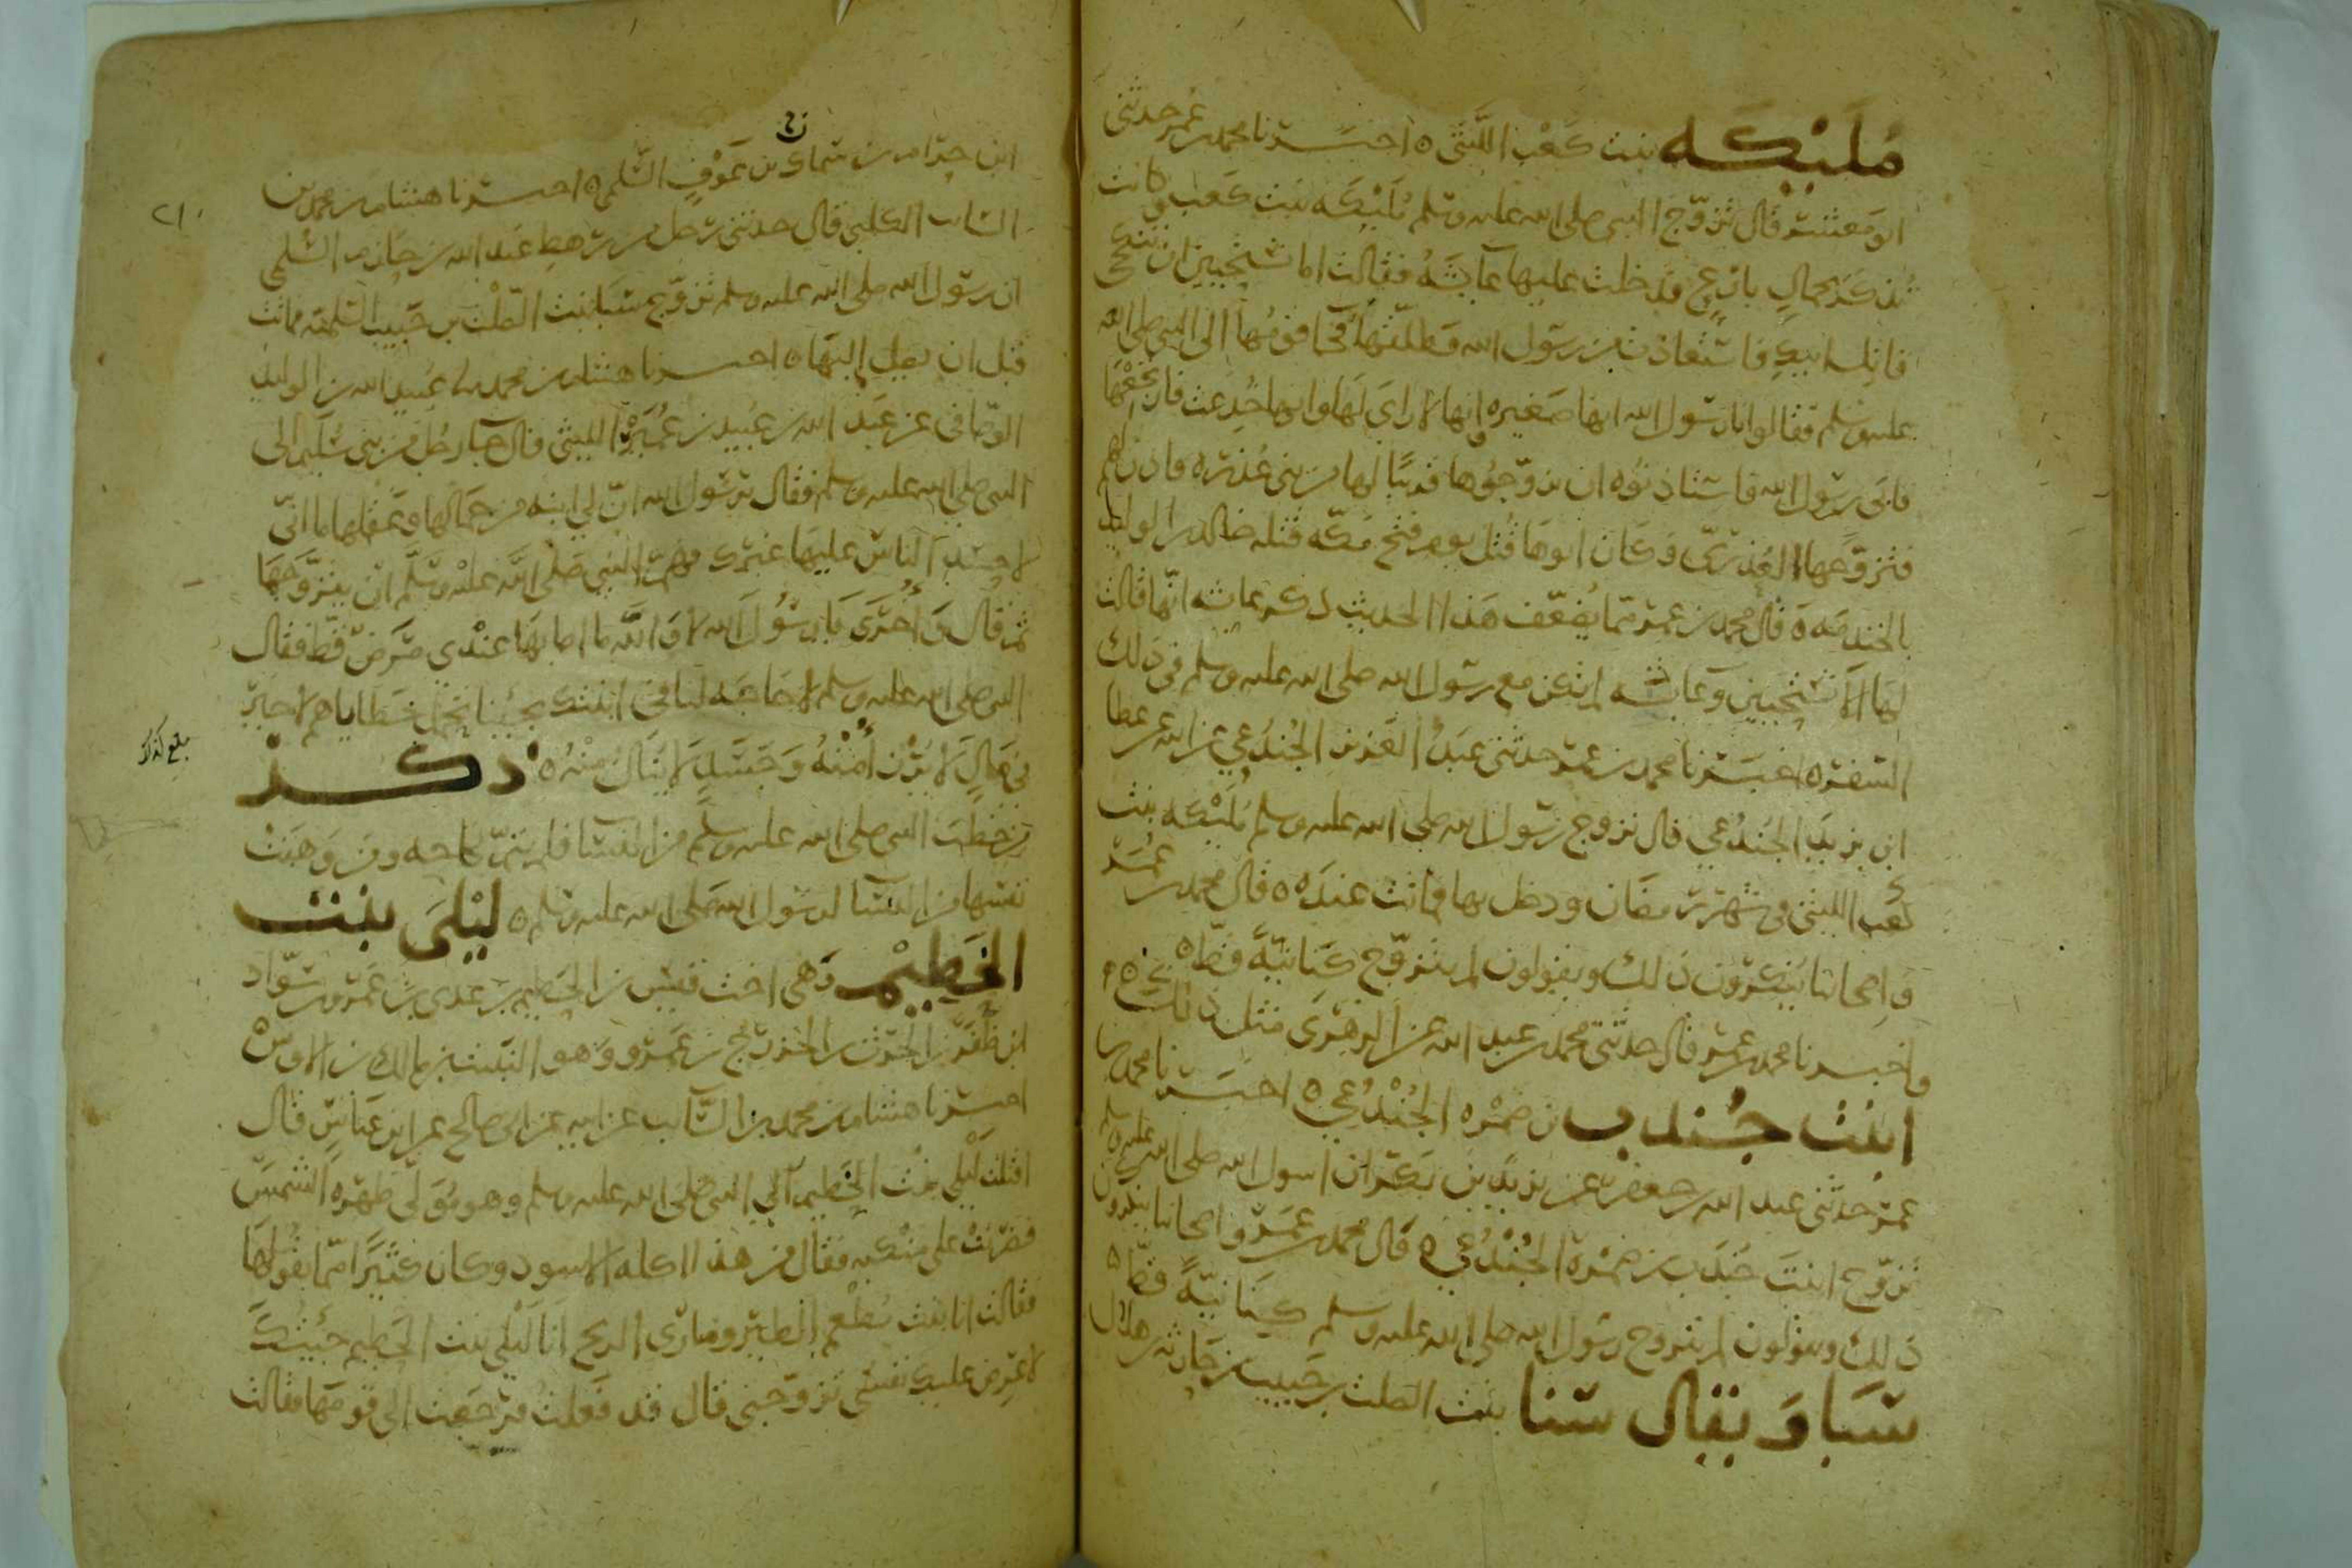 مُلَيْكَه بنت كَعْب الليثى ٥ اخبرنا محمد بن عمر حدثنى
ابو معشر قال تزوّج النبى صلى الله عليه وسلم مُلَيْكَه بنت كعب وكانت
تُذكَر بجمالٍ بارعٍ فدخلت عليها عايشَهُ فقالت اما تستحيين ان تنكحى
قاتل ابيكِ فاستعاذت من رسول الله فطلّقَها فجا قومُها الى النبى صلى الله
عليه وسلم فقالوا يا رسول الله انها صَغيره وانها لا راى لَها وانها خُدِعت فارتجعْها
فابى رسول الله فاستاذنُوه ان يزوّجُوها قريبًا لها من بنى عُذره فاذن لهم
فتزوّجها العُذرىّ وَكان ابوها قُتل يوم فتح مكه قتله خالد بن الوليد
بالخندمَه ٥ قال محمد بن عمر ممّا يُضعّف هَذا الحديث ذكر عايشه انّها قالت
لهَا الا تستحيين وَعايشه لم تكن مع رسول الله صلى الله عليه وسلم فى ذلك
السَفَر ٥ اخبَرنا محمد بن عمر حدثنى عبدُ العَزيز الجُندُعِي عن ابيه عن عطا
ابن يزيد الجُندُعي قال تزوج رسول الله صلى الله عليه وسلم مُليْكه بنت
كَعب الليثى فى شهر رمضان ودخل بها فماتت عندَه ٥ قال محمد بن عُمَر
وَاصحابنا يُنكِرُون ذلك ويقولون لم يتزوّج كِنَانيّةً قطّ ٥
واخبرنا محمد بن عمر قال حدثنى محمد بن عبد الله عن الزهرى مثل ذلك
ابنَت جُندب بن ضَمْره الجُنْدُعِي ٥ اخبَرنا محمد بن
عمر حدثنى عبد الله بن جعفر عن يزيد بن بَكر ان رسول الله صلى الله عليه وسلم
تزوّج ابنَت جُندَب بن ضمْرة الجُنْدُعِي ٥ قال محمد بن عُمَر واصحابنا ينكرون
ذلك ويقولون لم يتزوج رسول الله صلى الله عليه وسلم كِنَانيّةً قطّ ٥
سَبَا وَيقال سَنا بنت الصلت بن حَبيب بن حَارثه بن هلال
٢١٠
ابن حِرَام بن سَماك بن عَوْفٍ السُّلمى ٥ اخبرنا هشام بن محمد بن
السايب الكلبى قال حدثنى رَجل من رهطِ عَبد الله بن خَازم السُّلمي
ان رسول الله صلى الله عليه وسلم تزوّج سَبَا بنت الصّلْت بن حَبيب السُّلميّه فماتت
قبل ان يصل إليهَا ٥ اخبرنا هشام بن محمد بن عُبيد الله بن الوليد
الوصّافى عن عبَد الله بن عُبيد بن عُمَيْر الليثى قال جا رجُل من بنى سُليم الى
النبى صلى الله عليه وسلم فقال يرسُول الله انّ لي ابنه من جمالها وعَقلها ما انّى
لاحسُد الناسَ عليهَا غيرك فهَمّ النبى صَلّى اللَّه عليْه وسَلَّم ان يتزَوَّجهَا
ثم قال وَأُخرَى يَا رسُولَ الله لا وَاللَّه ما اصابهَا عنْدي مَرَضٌ قطّ فقال
النبى صلى الله عليه وسلم لا حَاجَه لنا فى ابنتك تجيُنا تحمل خطاياها لا خيرَ
فى مَالٍ لا يُرْزَأ مِنْهُ وَجَسَدٍ لَا يُنَالُ مِنْهُ ٥ ذكر
من خَطَب النبى صلى الله عليه وسلم من النسَا فلم يتمّ نكاحه ومن وَهَبَت
نفسَها من النسَا لرسُول الله صَلى الله عليه وسلم ٥ ليْلَى بنت
الخَطيْم وَهى اخت قيس بن الخَطيم بن عَدى بن عَمرو بن سَوّاد
ابن ظَفَر بن الحَرث بن الخزرج بن عَمرو وَهو النبيت بن مالك بن الاوسْ
اخبرنا هشام بن محمد بن السَّايب عن ابيه عن ابى صَالح عن ابن عَبَاسٍ قال
اقبلت لَيْلى بنت الخَطيم الى النبى صَلى الله عليه وسلم وهو مُوَلّى ظهْرَه الشَمسَ
فضَرَبَتْ على منْكبه فَقَال من هَذا اكله الاسود وكان كثيرًا مّا يقُولهَا
فقالت انا بنت مُطْعِم الطير ومُبارى الريح انَا لَيْلَى بنت الخَطيم جئتك
لاعْرِض عليكَ نفسى تزوّجنى قال قد فَعَلتُ فرَجعت الى قومهَا فقالت